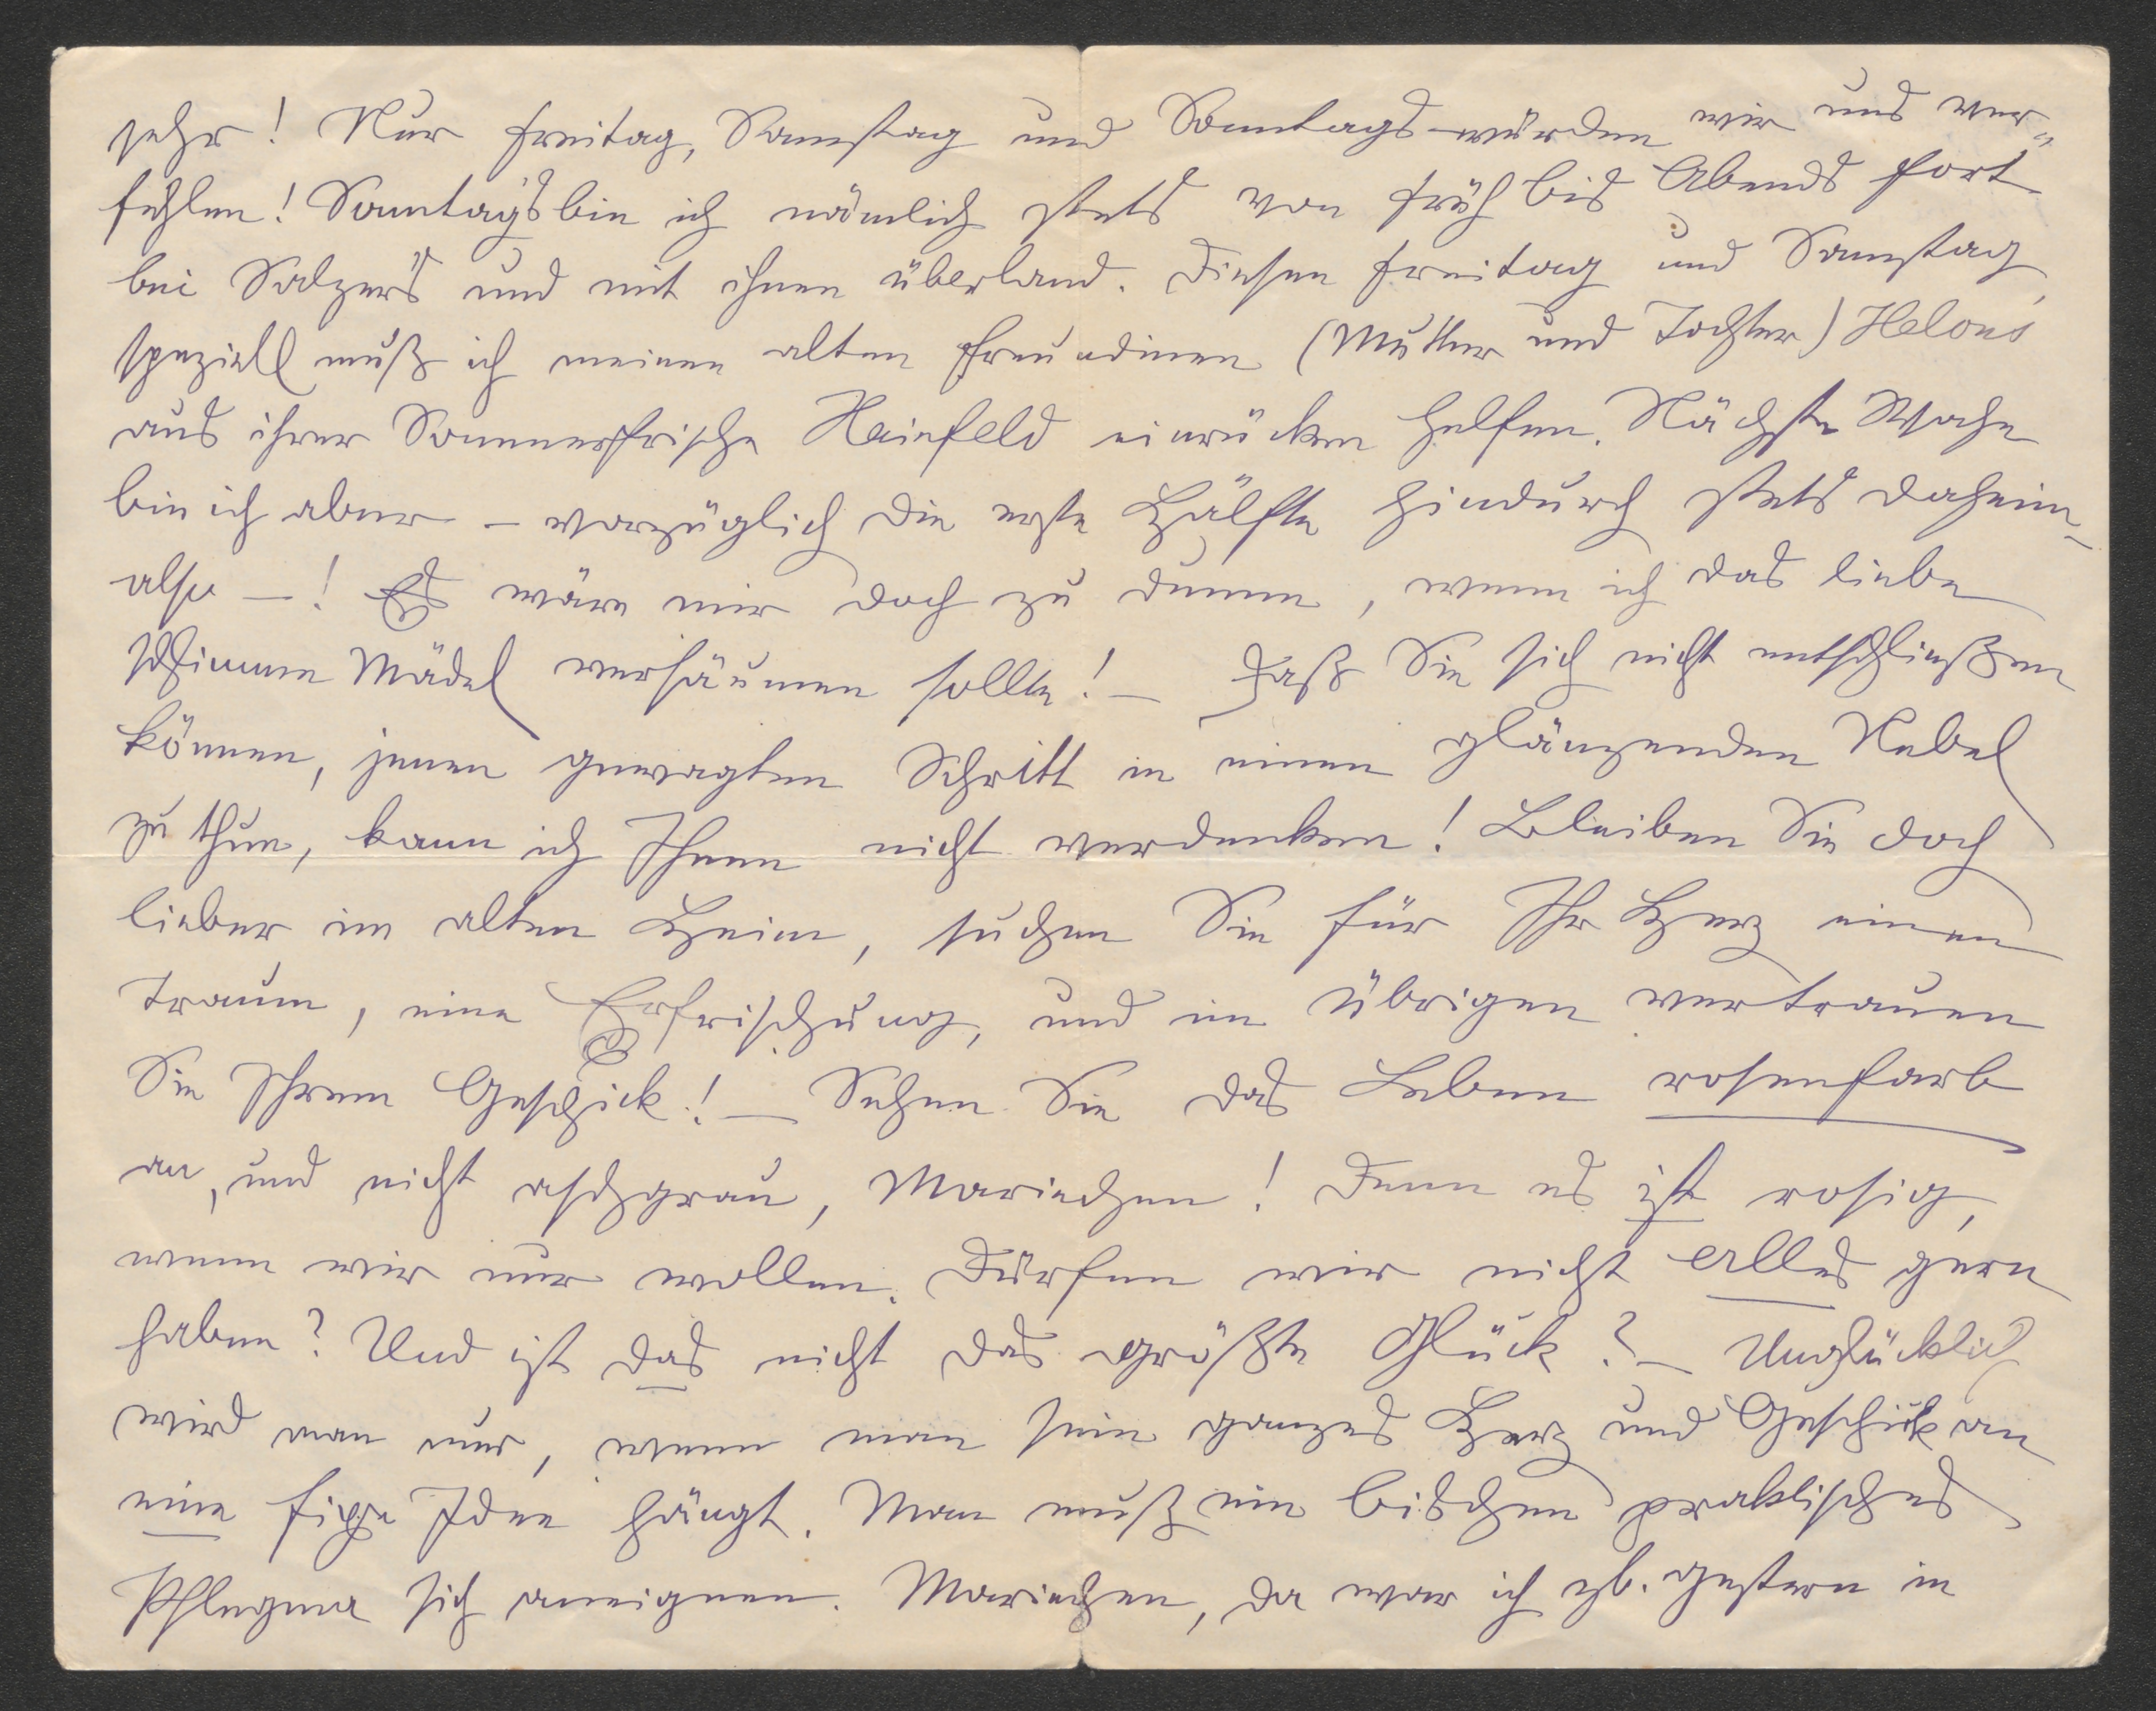 sehr! Nur Freitag, Samstag und Sonntags würden wir uns ver„
fehlen! Sonntag's bin ich nämlich stets von früh bis Abends fort
bei Salzer's und mit ihnen überland. Diesen Freitag und Samstag,
speziell muß ich meinen alten Freundinen (Mutter und Tochter) Helons
aus ihrer Sommerfrische Hainfeld einrücken helfen. Nächste Woche
bin ich aber – vorzüglich die erste Hälfte hindurch stets daheim –
also –! Es wäre mir doch zu dumm, wenn ich das liebe
schlimme Mädel versäumen sollte! – Daß Sie sich nicht entschließen
können, jenen gewagten Schritt in einen glänzenden Nebel
zu thun, kann ich Ihnen nicht verdenken! Bleiben Sie doch
lieber im alten Heim, suchen Sie für Ihr Herz einen
Traum, eine Erfrischung, und im Übrigen vertrauen
Sie Ihrem Geschick! – Sehen Sie das Leben rosenfarb
an, und nicht aschgrau, Mariechen! Denn es ist rosig,
wenn wir nur wollen. Dürfen wir nicht alles gern
haben? Und ist das nicht das größte Glück? – Unglücklich
wird man nur, wenn man sein ganzes Herz und Geschick an
eine fixe Idee hängt. Man muß ein bischen praktisches
Phlegma sich aneignen. Mariechen, da war ich zb. gestern in